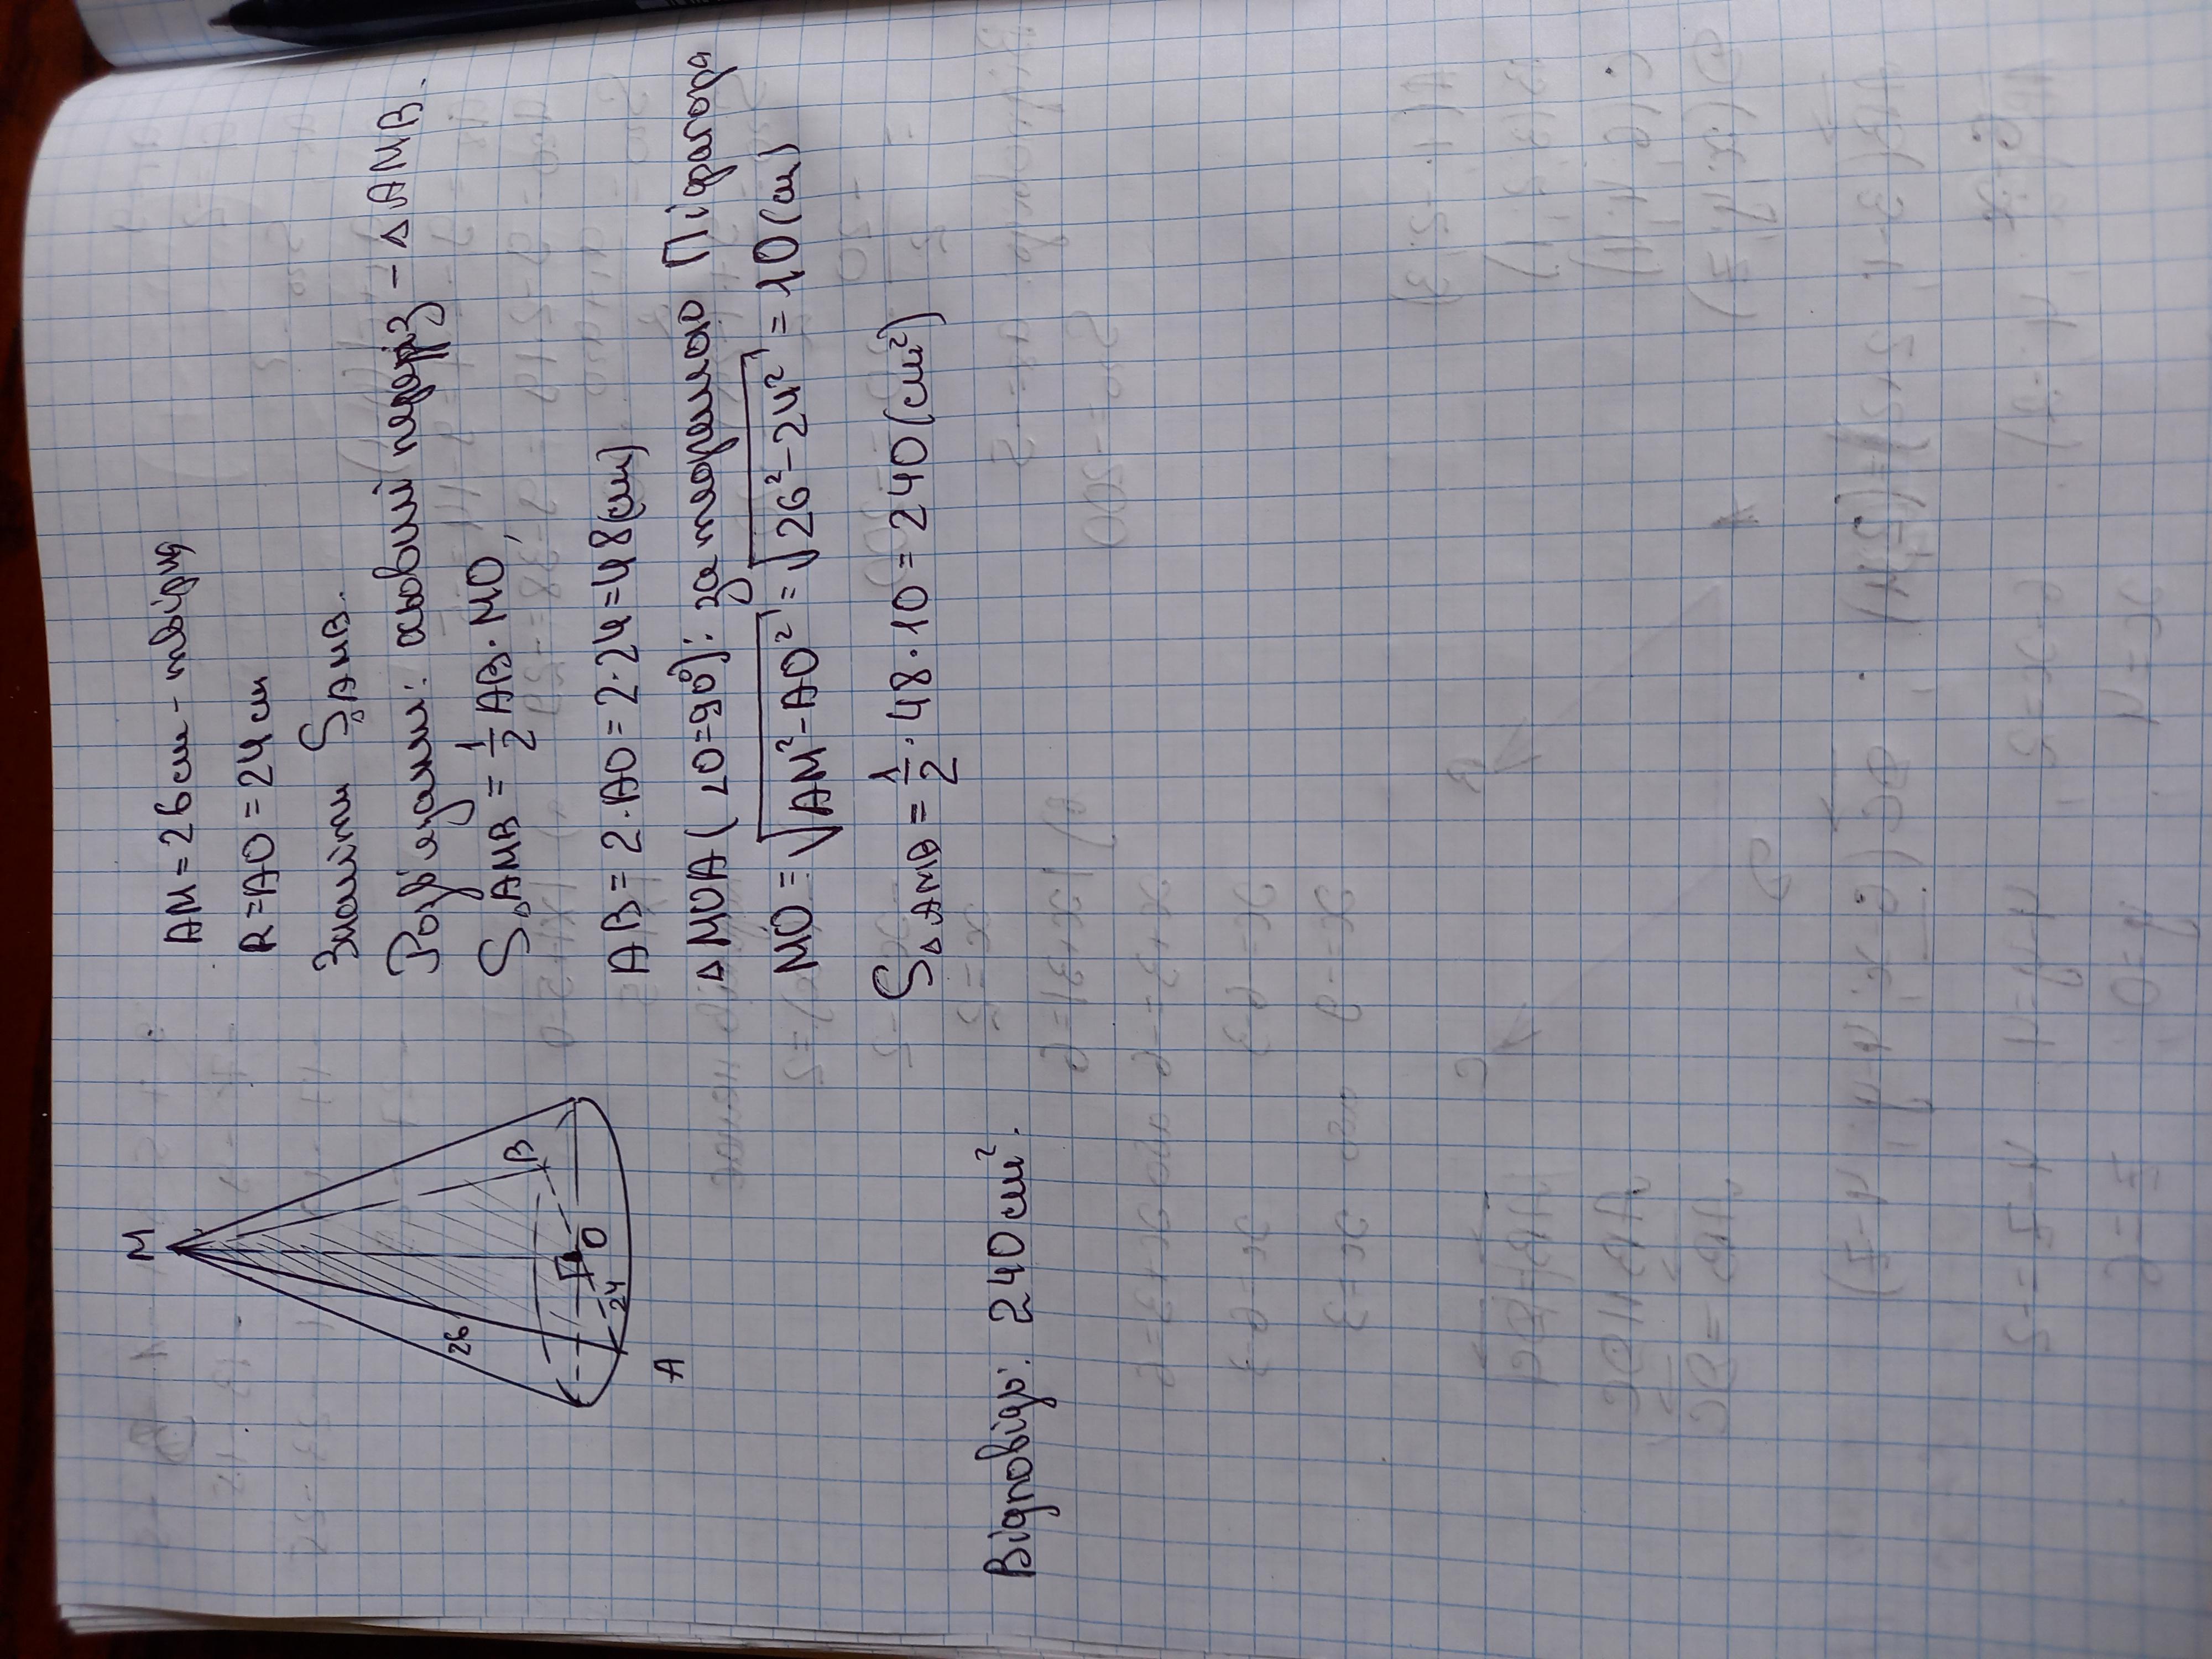 M
26
B
O
24
A
AM = 26 см - твірна
R = AO = 24 см
Знайти S△AMB.
Розв'язання: осьовий переріз - △AMB.
S△AMB = 1/2 AB · MO,
AB = 2 · AO = 2 · 24 = 48 (см)
△MOA (∠O = 90°): за теоремою Піфагора
MO = √(AM² - AO²) = √(26² - 24²) = 10 (см)
S△AMB = 1/2 · 48 · 10 = 240 (см²)
Відповідь: 240 см².